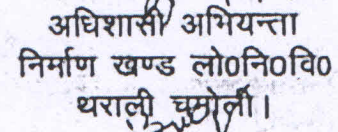 अधिशासी अभियन्ता
निर्माण खण्ड लो०नि०वि०
थराली चमोली।